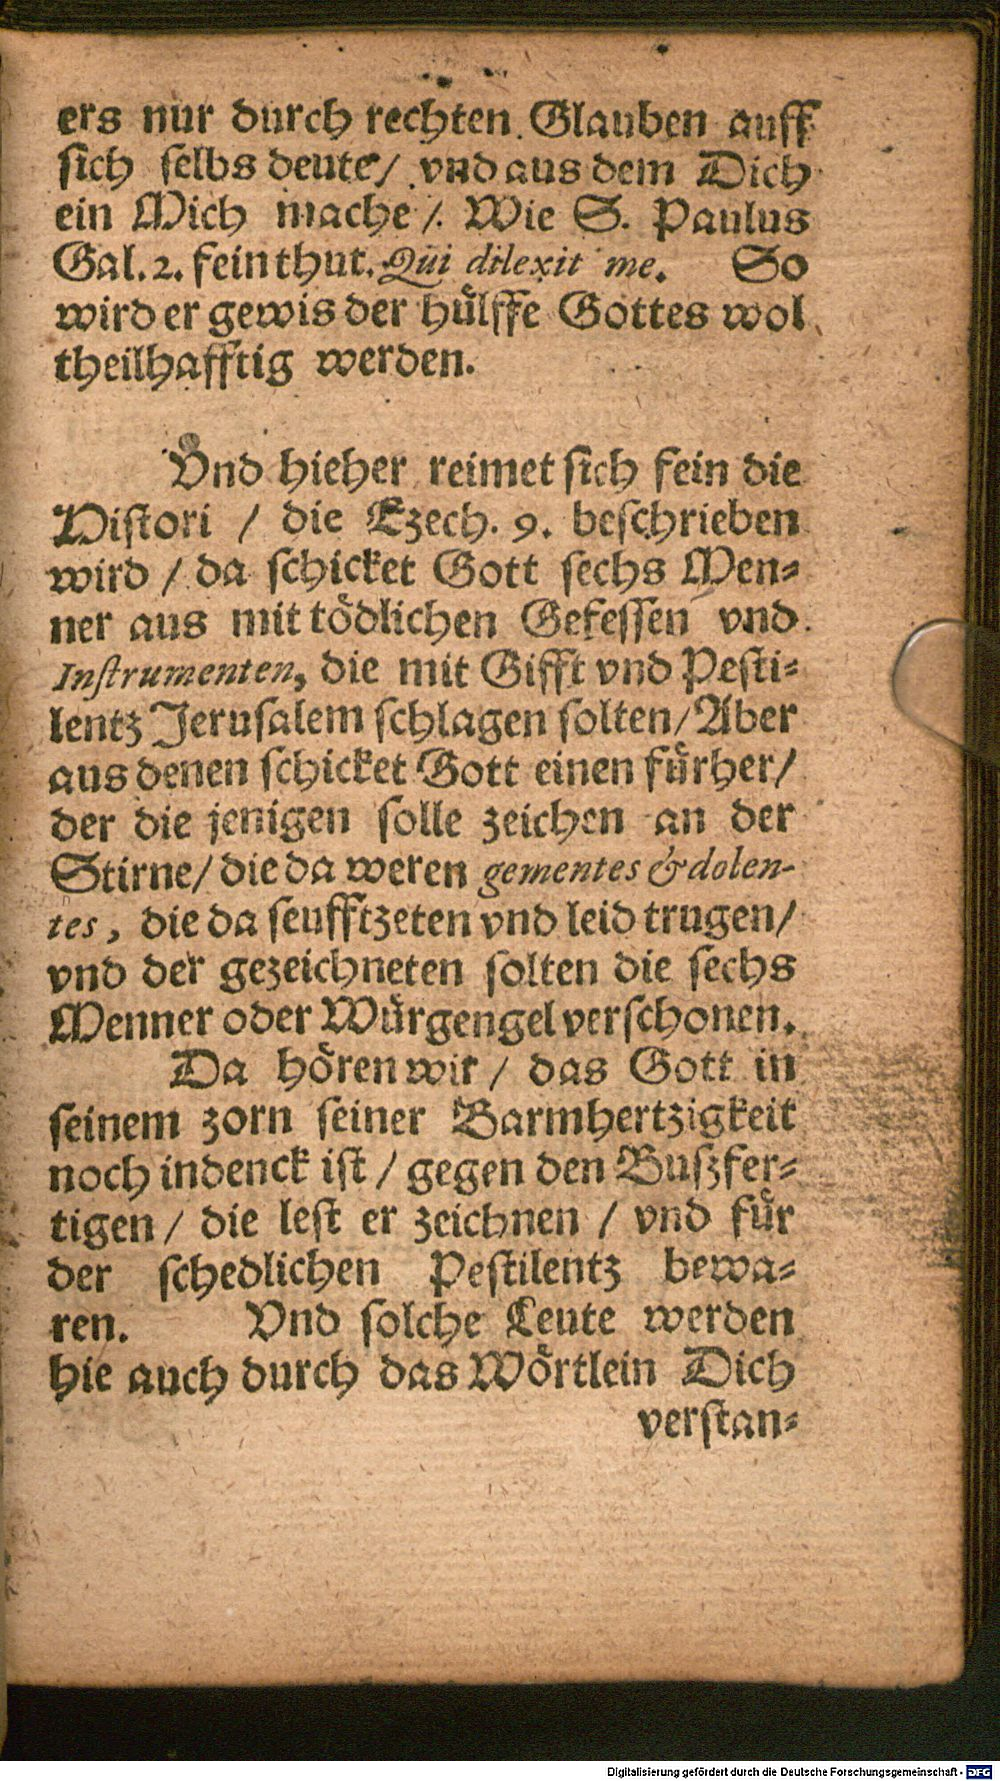 ers nur durch rechten Glauben auff
sich selbs deute/ vnd aus dem Dich
ein Mich mache/ Wie S. Paulus
Gal. 2. fein thut. Qui dilexit me. So
wird er gewis der hülffe Gottes wol
theilhafftig werden.
Vnd hieher reimet sich fein die
Histori / die Ezech. 9. beschrieben
wird / da schicket Gott sechs Men-
ner aus mit tödlichen Gefessen vnd
Instrumenten, die mit Gifft vnd Pesti-
lentz Jerusalem schlagen solten/ Aber
aus denen schicket Gott einen fürher/
der die jenigen solle zeichen an der
Stirne/ die da weren gementes & dolen-
tes, die da seufftzeten vnd leid trugen/
vnd der gezeichneten solten die sechs
Menner oder Würgengel verschonen.
Da hören wir / das Gott in
seinem zorn seiner Barmhertzigkeit
noch indenck ist / gegen den Buszfer-
tigen / die lest er zeichnen / vnd für
der schedlichen Pestilentz bewa-
ren. Vnd solche Leute werden
hie auch durch das Wörtlein Dich
verstan-
Digitalisierung gefördert durch die Deutsche Forschungsgemeinschaft - DFG